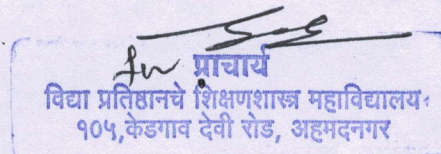 for प्राचार्य
विद्या प्रतिष्ठानचे शिक्षणशास्त्र महाविद्यालय
१०५,केडगाव देवी रोड, अहमदनगर